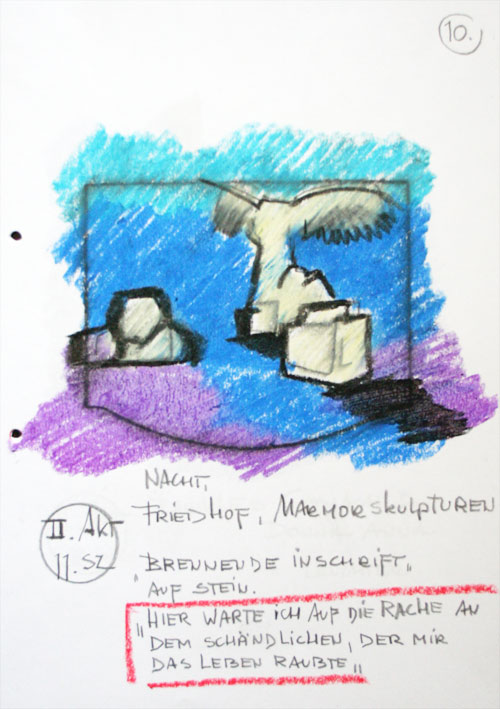 10.
NACHT,
FRIEDHOF, MARMORSKULPTUREN
II. AKT
11. SZ
BRENNENDE INSCHRIFT„
AUF STEIN.
„HIER WARTE ICH AUF DIE RACHE AN
DEM SCHÄNDLICHEN, DER MIR
DAS LEBEN RAUBTE„